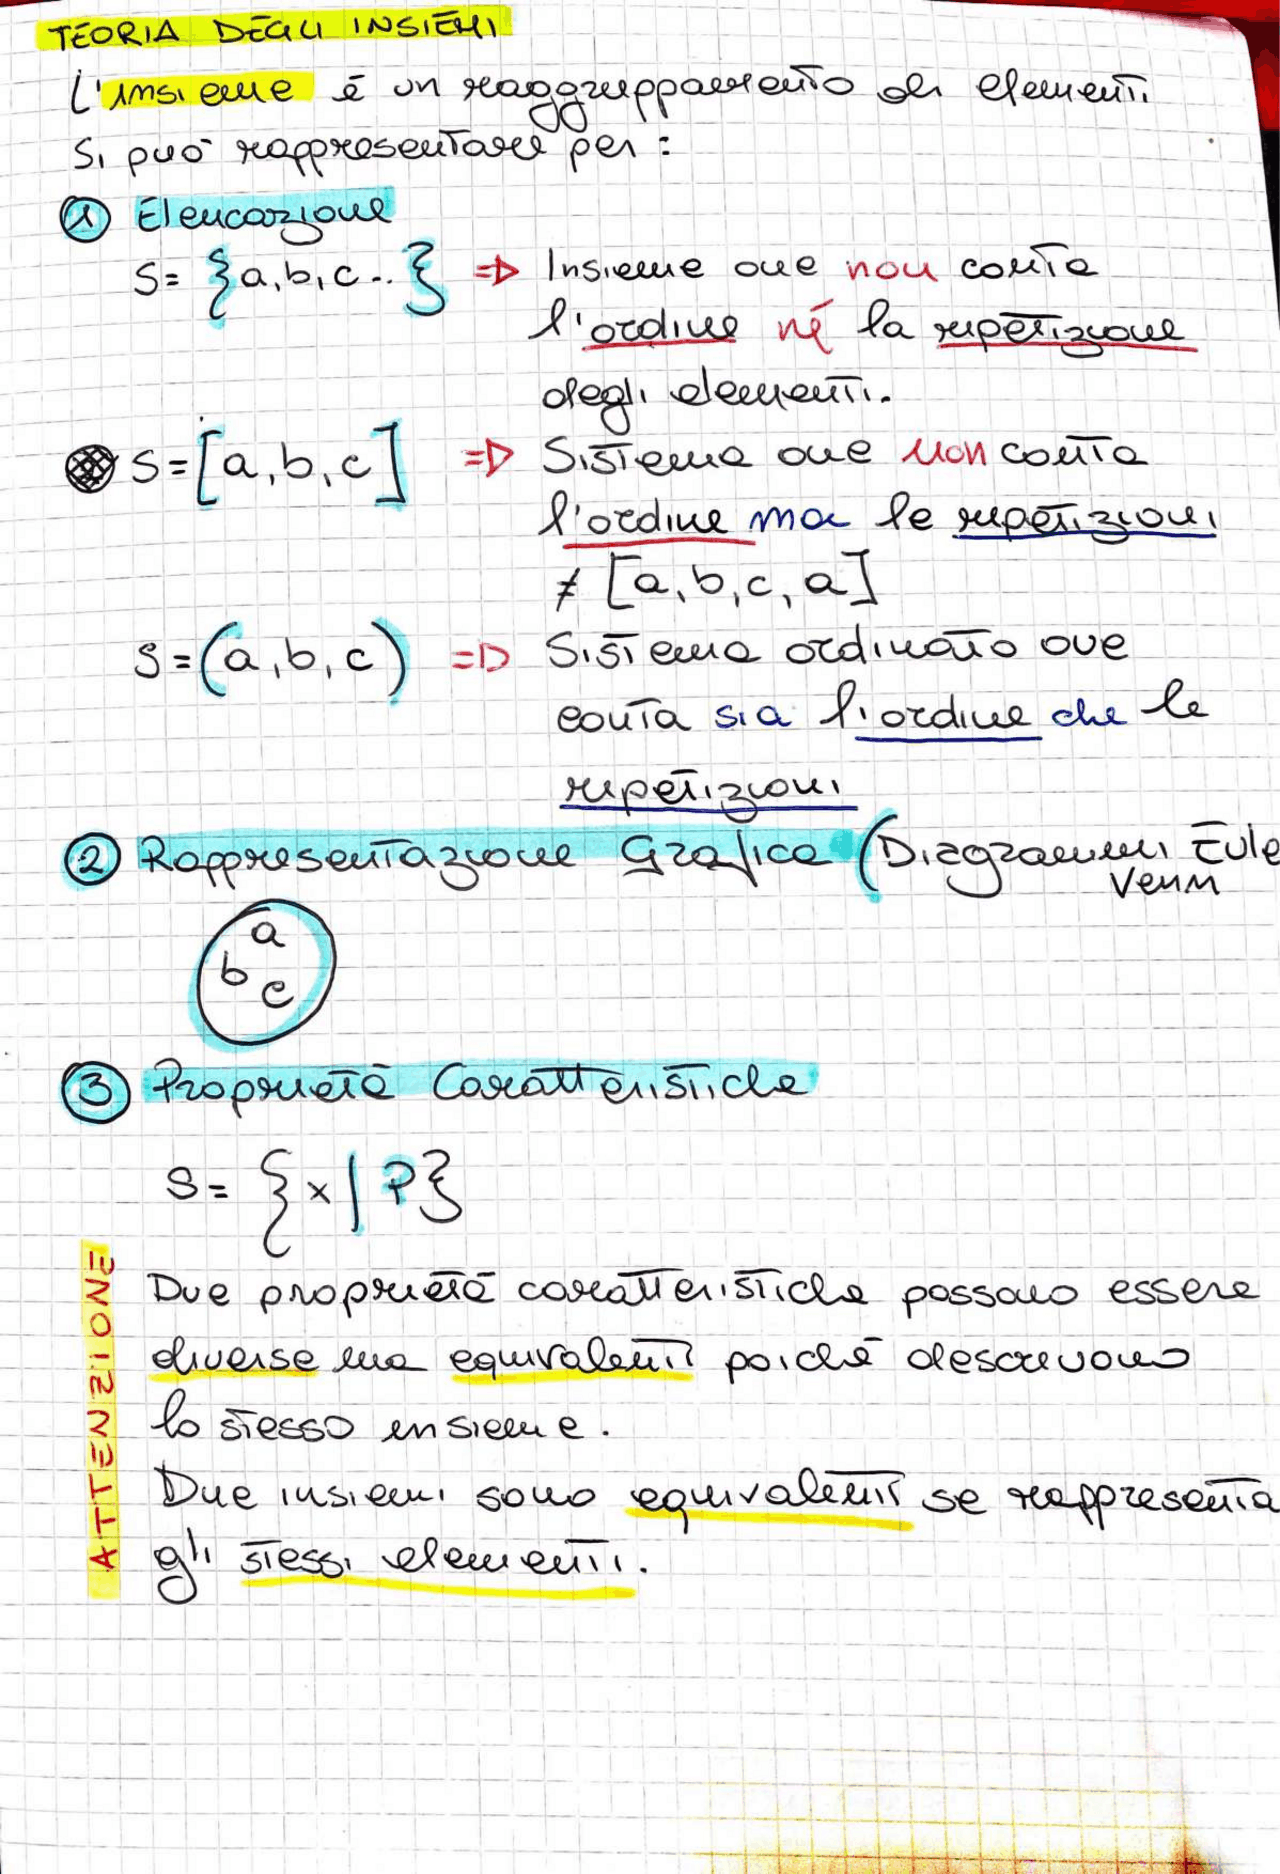 TEORIA DEGLI INSIEMI
L'insieme è un raggruppamento di elementi.
Si può rappresentare per:
1 Elencazione
S= {a,b,c..} => Insieme ove non conta
l'ordine né la ripetizione
degli elementi.
S=[a,b,c] => Sistema ove non conta
l'ordine ma le ripetizioni
≠ [a,b,c,a]
S=(a,b,c) => Sistema ordinato ove
conta sia l'ordine che le
ripetizioni
2 Rappresentazione Grafica (Diagrammi Eule
Venn
a
b
c
3 Proprietà Caratteristiche
S= {x|P}
ATTENZIONE
Due proprietà caratteristiche possono essere
diverse ma equivalenti poiché descrivono
lo stesso insieme.
Due insiemi sono equivalenti se rappresenta
gli stessi elementi.